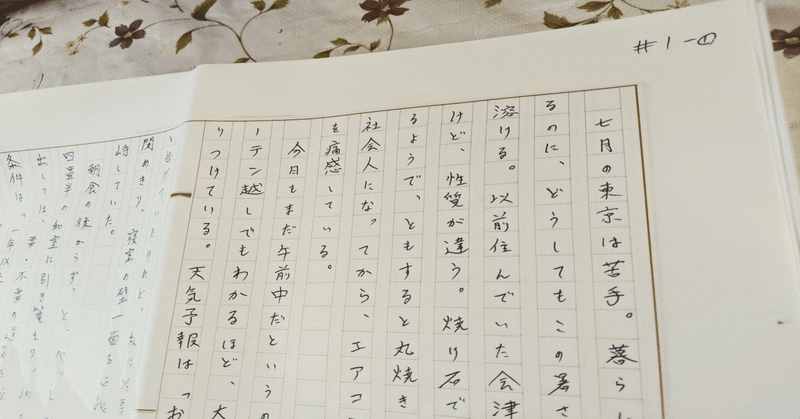 #1-①
七月の東京は苦手。暮ら
るのに、どうしてもこの暑さ
溶ける。以前住んでいた会津
けど、性質が違う。焼け石で
るようで、ともすると丸焼き
社会人になってから、エアコ
を痛感している。
今日もまだ午前中だというの
ーテン越しでもわかるほど、太
りつけている。天気予報は「お
閉めきり、寝室の壁一面
していた。
朝食の後からずっと、
四畳半の和室に引き篭もり、
出しては、要・不要
条件は「一年以上